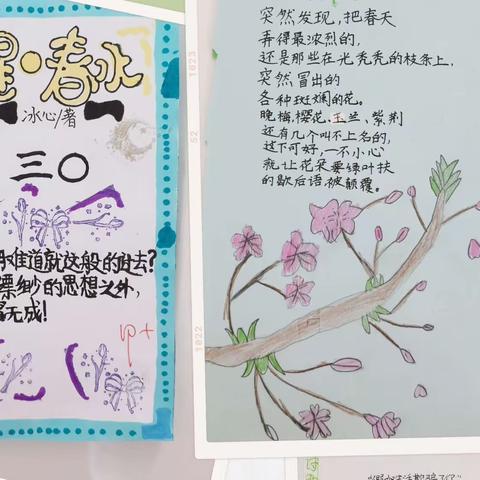 星·春水
冰心/著
三〇
难道就这般的过去?
缥缈的思想之外,
无成!
甲+
突然发现,把春天
弄得最浓烈的,
还是那些在光秃秃的枝条上,
突然冒出的
各种斑斓的花。
晚梅,樱花,玉兰、紫荆
还有几个叫不上名的,
这下可好,一不小心
就让花朵要绿叶扶
的歇后语被颠覆。
1023
52
1022